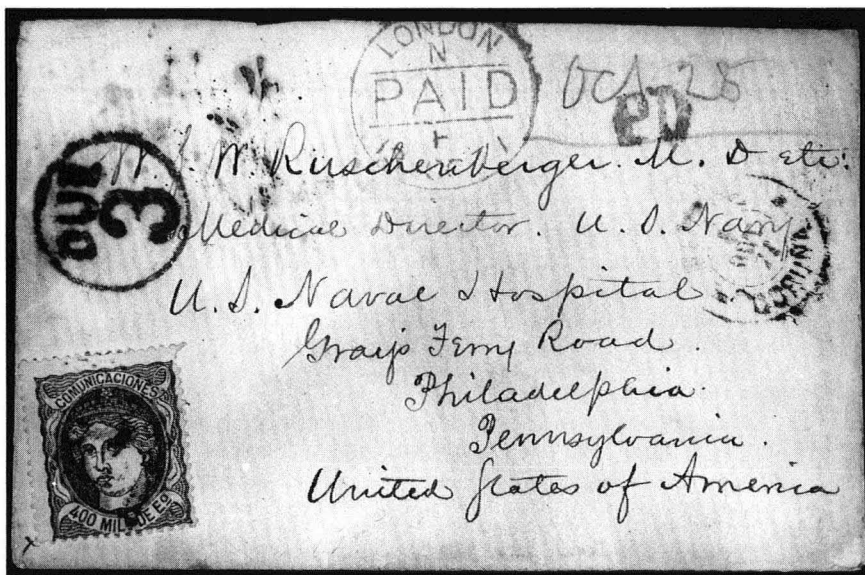 LONDON
N
PAID
Oct 25
PD
DUE
3
W. S. W. Ruschenberger. M. D etc:
Medical Director. U. S. Navy
CORUÑA
U. S. Naval Hospital.
Gray's Ferry Road.
Philadelphia.
Pennsylvania.
United States of America
COMUNICACIONES
400 MILS DE Eo